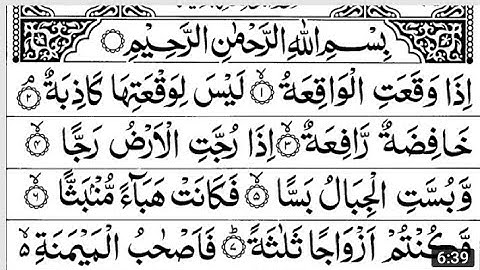 بِسْمِ اللهِ الرَّحْمٰنِ الرَّحِيْمِ
اِذَا وَقَعَتِ الْوَاقِعَةُ ۙ﴿۱﴾ لَيْسَ لِوَقْعَتِهَا كَاذِبَةٌ ۘ﴿۲﴾
خَافِضَةٌ رَّافِعَةٌ ۙ﴿۳﴾ اِذَا رُجَّتِ الْاَرْضُ رَجًّا ۙ﴿۴﴾
وَّبُسَّتِ الْجِبَالُ بَسًّا ۙ﴿۵﴾ فَكَانَتْ هَبَآءً مُّنْۢبَثًّا ۙ﴿۶﴾
وَّكُنْتُمْ اَزْوَاجًا ثَلٰثَةً ؕ﴿۷﴾ فَاَصْحٰبُ الْمَيْمَنَةِ ۬ۙ
6:39